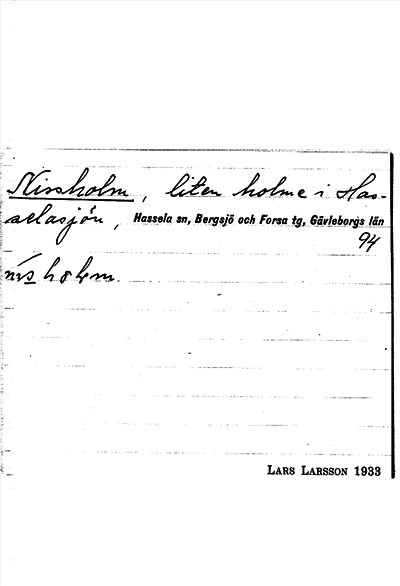 Nissholm, liten holme i Has-
selasjön, Hassela sn, Bergsjö och Forsa tg, Gävleborgs län
94
nis holm.
LARS LARSSON 1933